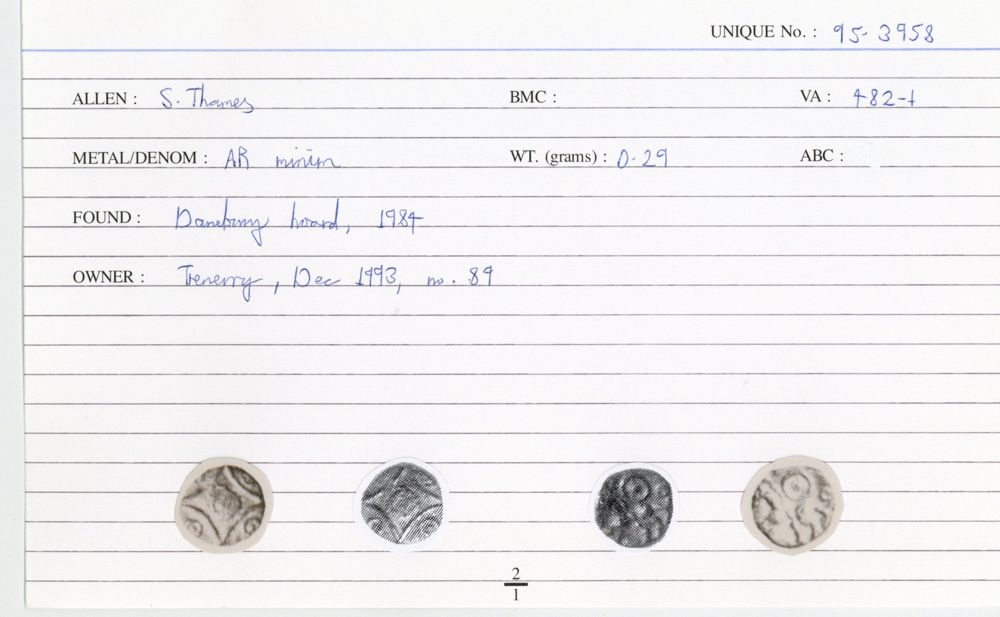 UNIQUE No. : 95-3958
ALLEN : S. Thames BMC : VA : 482-1
METAL/DENOM : AR minim WT. (grams) : 0.29 ABC :
FOUND : Danebury hoard, 1984
OWNER : Trenerry, Dec 1993, no. 89
2
1